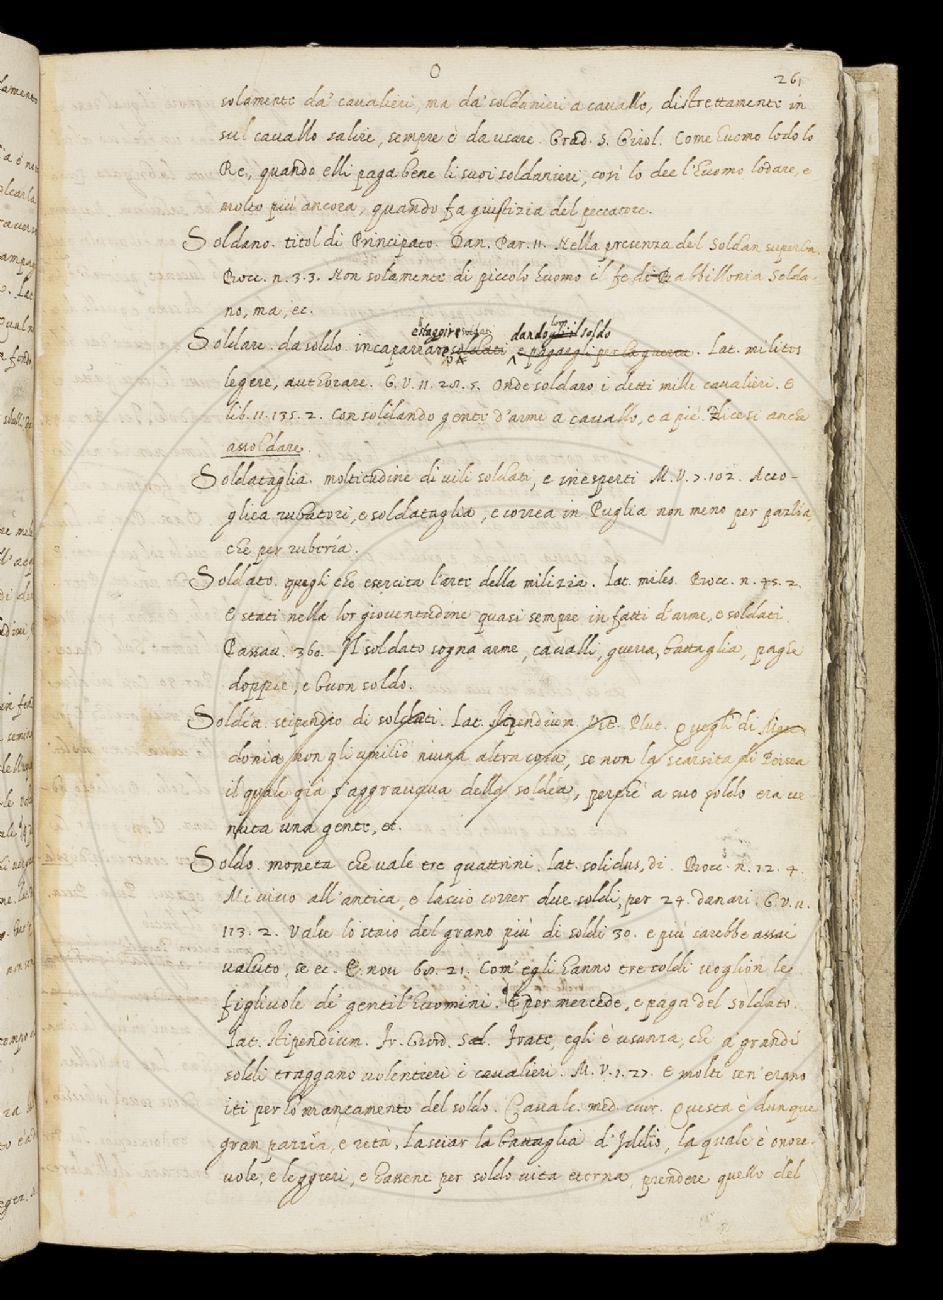 O
261
solamente da' cavalieri, ma da' soldanieri a cavallo, distrettamente in
sul cavallo salire, sempre è da usare. Grad. S. Girol. Come huomo lodo lo
Re, quando elli paga bene li suoi soldanieri, così lo dee l'huomo lodare, e
molto più ancora, quando fa giustizia del peccatore.
Soldano. titol di Principato. Dan. Par. 11. Nella presenza del Soldan superba.
Bocc. n. 3. 3. Non solamente di piccolo huomo il fe di Babillonia Solda-
no, ma, ec.
dando loro il soldo
Soldare. da soldo. incaparrare soldati e pagargli per la guerra. Lat. milites
legere, authorare. G. V. 11. 28. 5. Onde soldaro i detti mille cavalieri. E
lib. 11. 135. 2. Con soldando gente d'arme a cavallo, e a piè. Dicesi anche
assoldare.
Soldataglia. moltitudine di vili soldati, e inesperti M. V. 7. 102. Acco-
glica rubatori, e soldataglia, e correa in Puglia non meno per paglia,
che per ruberia.
Soldato. quegli che esercita l'arte della milizia. Lat. miles. Bocc. n. 45. 2.
E stati nella lor gioventudine quasi sempre in fatti d'arme, e soldati
Passav. 360. Il soldato sogna arme, cavalli, guerra, battaglia, paghe
doppie, e buon soldo.
Soldéa. stipendio di soldati. Lat. stipendium. Vit. Plut. Quegli di
donia non gli umiliò niuna altra cosa, se non la scarsità di
il quale già s'aggravava della soldéa, perchè a suo soldo era ve-
nuta una gente, ec.
Soldo. moneta che vale tre quattrini. Lat. solidus, di. Bocc. n. 12. 4.
Mi vivo all'antica, e lascio correr due soldi, per 24. danari. G. V. 11.
113. 2. Valse lo staio del grano più di soldi 30. e più sarebbe assai
valuto, se ec. E nov. 60. 21. Com' egli hanno tre soldi voglion le
figliuole de' gentil'huomini. E per mercede, e paga del soldato.
Lat. stipendium. Fr. Giord. Sal. Frate, egli è usanza, che a' grandi
soldi traggano volentieri i cavalieri. M. V. 1. 27. E molti sen'erano
iti per lo mancamento del soldo. Cavalc. med. cuor. Questa è dunque
gran pazzia, e viltà, lasciar la battaglia d'Iddio, la quale è onore-
vole, e leggieri, e hanne per soldo vita eterna, prendere quello del